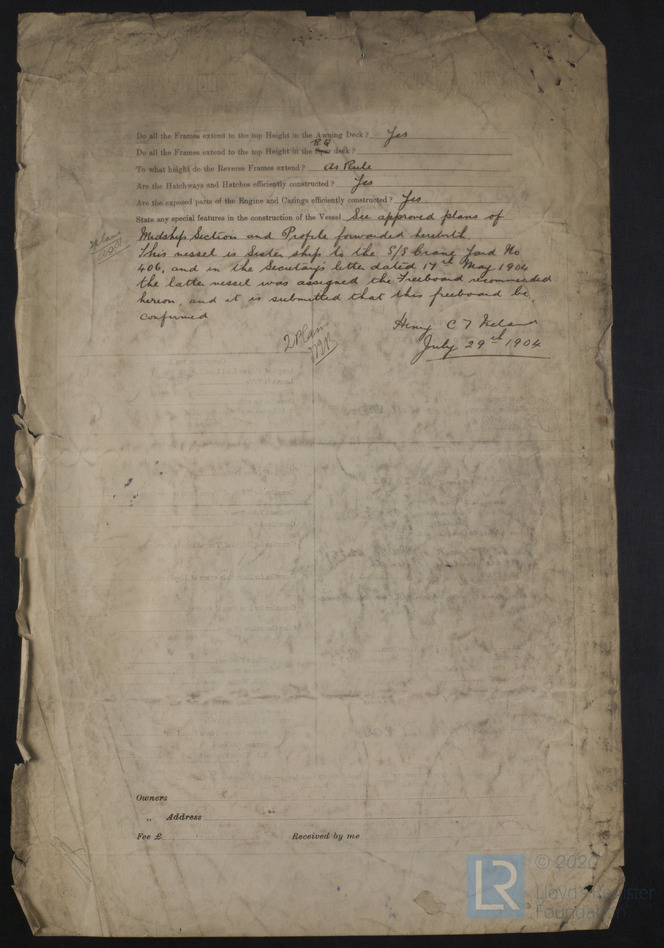 Do all the Frames extend to the top Height in the Awning Deck? Yes
R Q
Do all the Frames extend to the top Height in the deck?
To what height do the Reverse Frames extend? As Rule
Are the Hatchways and Hatches efficiently constructed? Yes
Are the exposed parts of the Engine and Casings efficiently constructed? Yes
State any special features in the construction of the Vessel See approved plans of
Midship Section and Profile forwarded herewith
This vessel is Sister ship to the S/S Crane Yard No
406, and in the Secretary's letter dated 17th May 1904
the latter vessel was assigned the Freeboard recommended
hereon, and it is submitted that this freeboard be
confirmed
2 Plans
Henry C T
July 29th 1904
Owners
„ Address
Fee £ Received by me
LR
© 2020
Lloyd's Register
Foundation